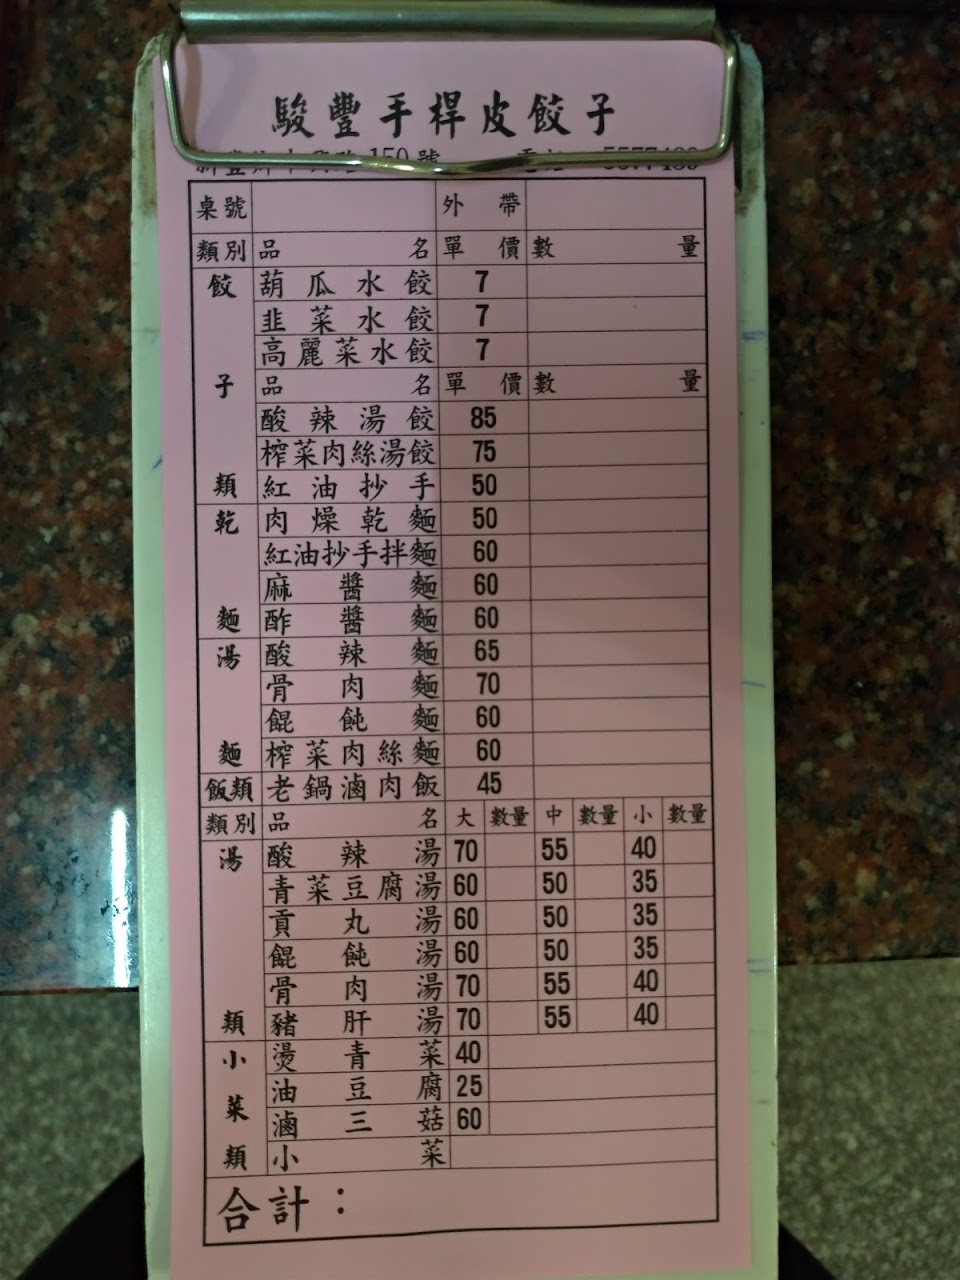 駿豐手桿皮餃子
150號 5577480
桌號 外帶
類別 品名 單價 數量
餃 葫瓜水餃 7
韭菜水餃 7
高麗菜水餃 7
子 品名 單價 數量
酸辣湯餃 85
榨菜肉絲湯餃 75
類 紅油抄手 50
乾 肉燥乾麵 50
紅油抄手拌麵 60
麻醬麵 60
麵 酢醬麵 60
湯 酸辣麵 65
骨肉麵 70
餛飩麵 60
麵 榨菜肉絲麵 60
飯類 老鍋滷肉飯 45
類別 品名 大 數量 中 數量 小 數量
湯 酸辣湯 70 55 40
青菜豆腐湯 60 50 35
貢丸湯 60 50 35
餛飩湯 60 50 35
骨肉湯 70 55 40
類 豬肝湯 70 55 40
小 燙青菜 40
菜 油豆腐 25
滷三菇 60
類 小菜
合計：